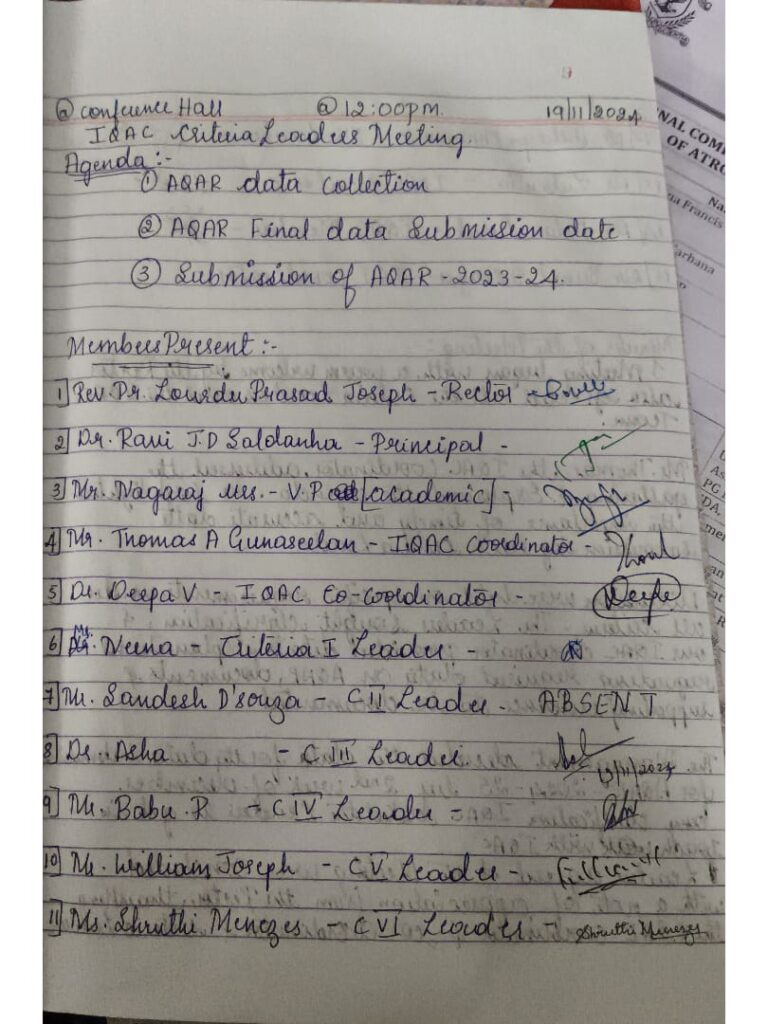 @ Conference Hall @ 12:00pm. 19/11/2024
IQAC Criteria Leaders Meeting.
Agenda :-
① AQAR data collection
② AQAR Final data Submission date
③ Submission of AQAR - 2023-24.
Members Present :-
1] Rev. Dr. Lourdu Prasad Joseph - Rector -
2] Dr. Ravi J.D Saldanha - Principal -
3] Mr. Nagaraj Urs. - V.P [academic] ,
4] Mr. Thomas A Gunaseelan - IQAC Coordinator -
5] Dr. Deepa V - IQAC Co-coordinator - Deepa
6] Ms. Neena - Criteria I Leader -
7] Mr. Sandesh D'souza - C II Leader - ABSENT
8] Dr. Asha - C III Leader. 19/11/2024
9] Mr. Babu P - C IV Leader -
10] Mr. William Joseph - C V Leader -
11] Ms. Shruthi Menezes - C VI Leader - Shruthi Menezes
NAL COM
OF ATRO
Na
na Francis
arhana
As
PG
DA,